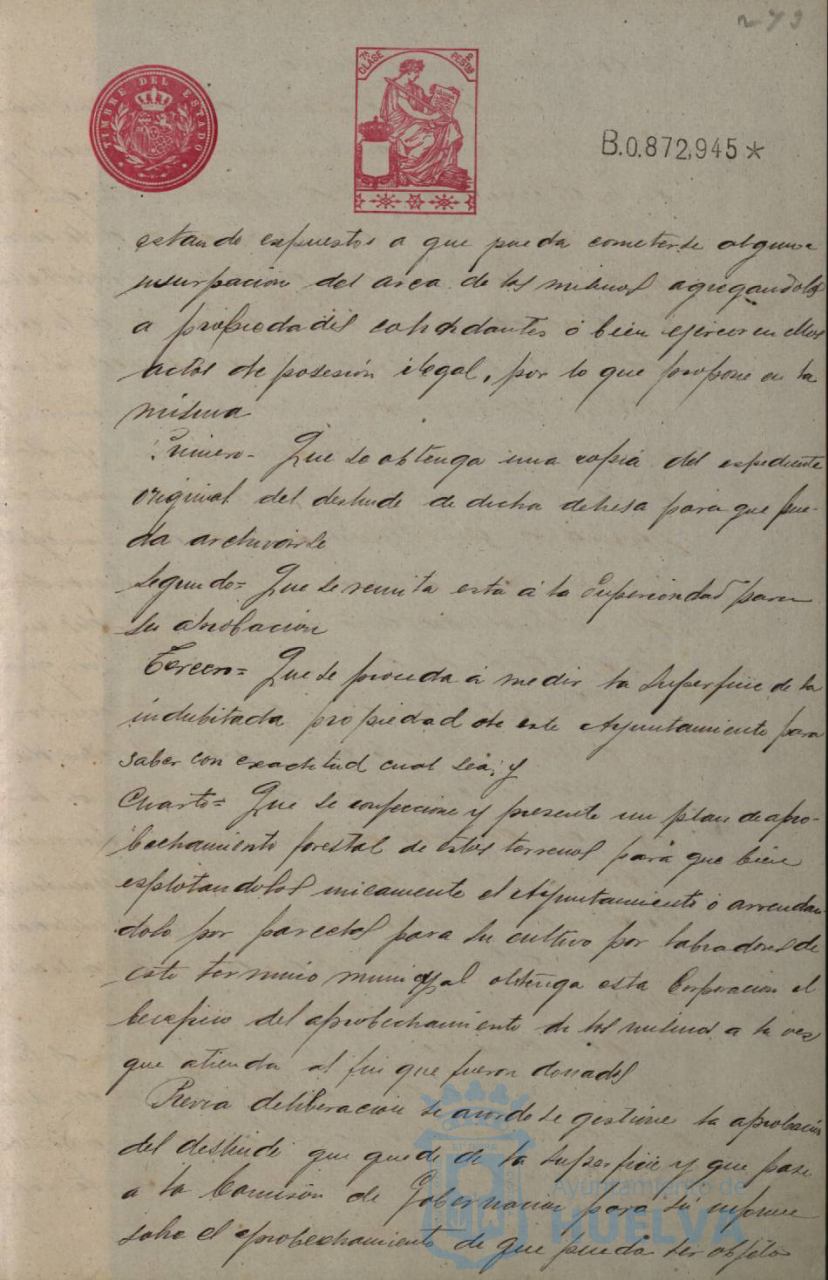 273
TIMBRE DEL ESTADO
7ª CLASE 2 PESETAS
B.0.872,945*
estando expuestos a que pueda cometerse alguna
usurpacion del area de los mismos agregandolos
a propiedades colindantes ó bien ejercer en ellos
actos de posesión ilegal, por lo que propone en la
misma
Primero= Que se obtenga una copia del expediente
original del deslinde de dicha dehesa para que pue-
da archivarse
Segundo= Que se remita esta á la Superioridad para
su aprobacion
Tercero= Que se proceda á medir la superficie de la
indubitada propiedad de este Ayuntamiento para
saber con exactitud cual sea; y
Cuarto= Que se confeccione y presente un plan de apro-
bechamiento forestal de estos terrenos para que bien
esplotandolos unicamente el Ayuntamiento ó arrendan
dolo por parcelas para su cultivo por labradores de
este termino municipal obtenga esta Corporacion el
beneficio del aprobechamiento de los mismos a la vez
que atienda al fin que fueron donados
Previa deliberacion se acordó se gestione la aprobación
del deslinde que quede de la superficie y que pase
a la Comisión de Gobernacion para su informe
sobre el aprobechamiento de que pueda ser objeto
Ayuntamiento de
HUELVA